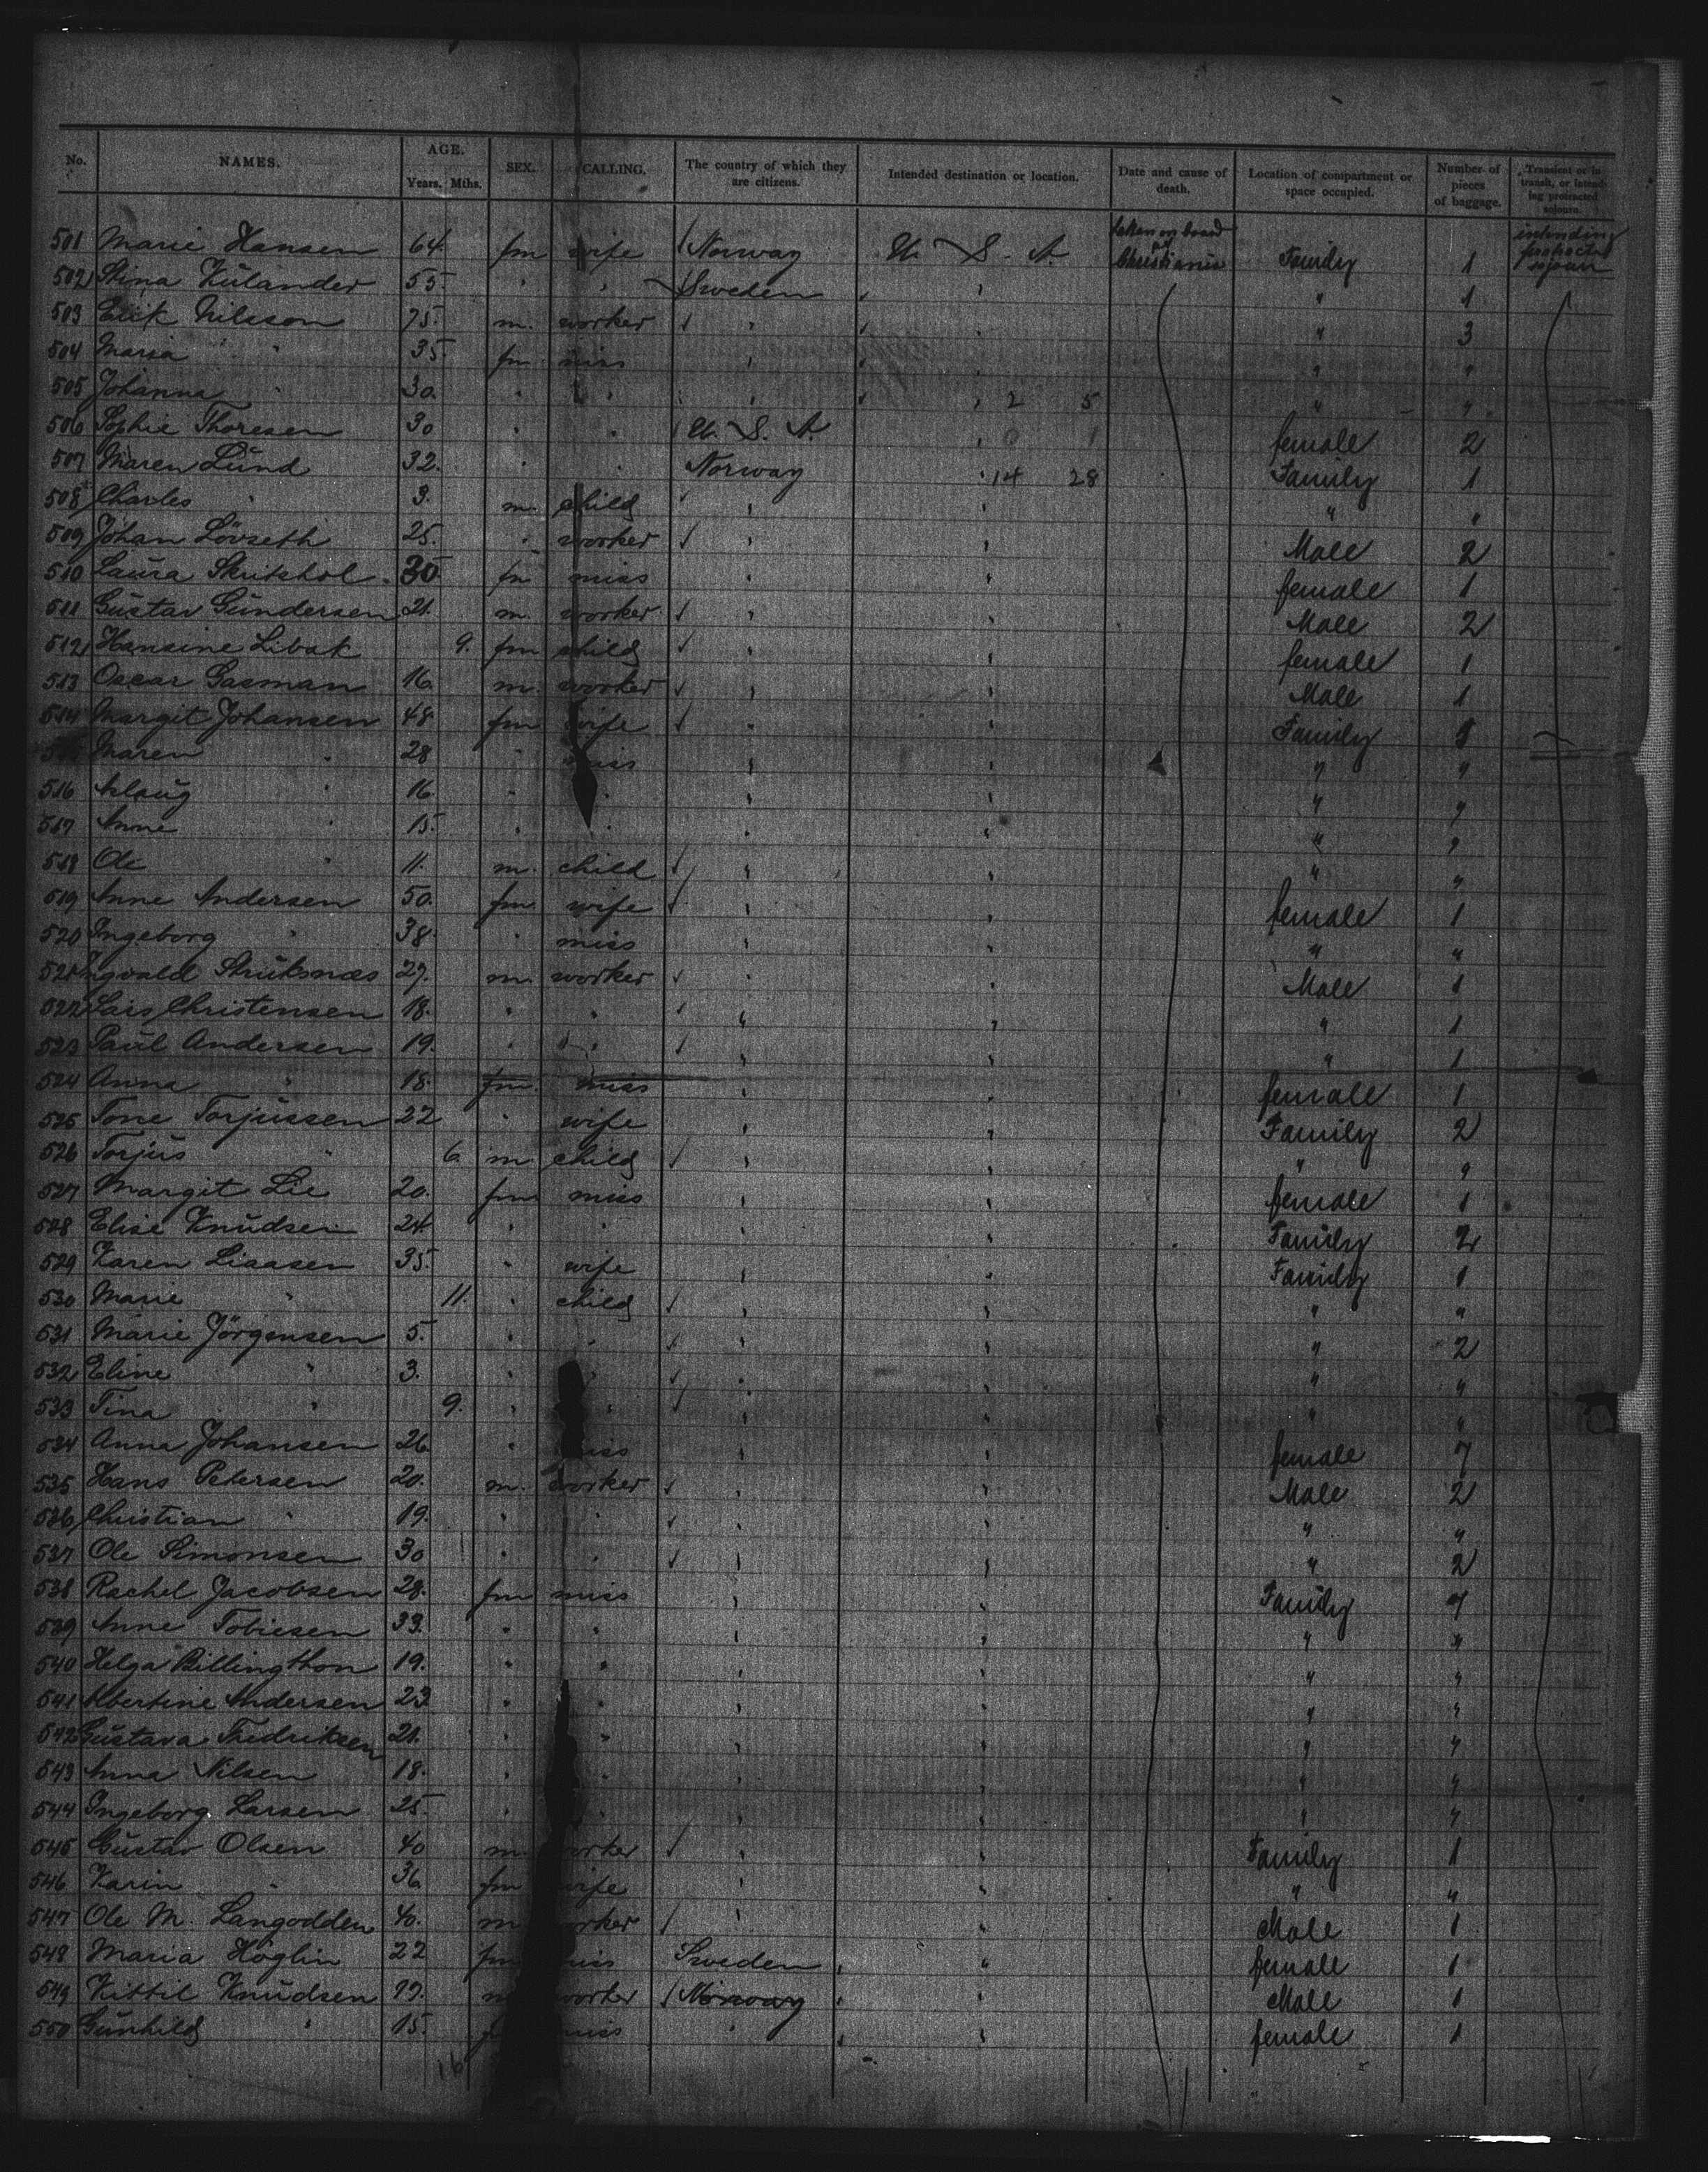 No. NAMES. AGE. Years. Mths. SEX. CALLING. The country of which they are citizens. Intended destination or location. Date and cause of death. Location of compartment or space occupied. Number of pieces of baggage. Transient or in transit, or intending protracted sojourn.
501 Marie Hansen 64. fm wife Norway U. S. A. taken on board at Christiania Family 1 intending protracted sojourn
502 Stina Kulander 55. " " Sweden " " " 1
503 Erik Nilsson 75. m. worker " " " 3
504 Maria " 35. fm miss " " " "
505 Johanna " 30. " " " " 2 5 " "
506 Sophie Thoresen 30 " " U. S. A. " 0 1 female 2
507 Maren Lund 32. " " Norway " 14 28 Family 1
508 Charles " 3. m. child " " " "
509 Johan Lövseth 25. " worker " " Male 2
510 Laura Skritshol 30 fm miss " " female 1
511 Gustav Gundersen 21. m. worker " " Male 2
512 Hansine Libak 9. fm child " " female 1
513 Oscar Gasman 16. m. worker " " Male 1
514 Margit Johansen 48. fm wife " " Family 1
515 Maren " 28 " miss " " " "
516 Aslaug " 16. " " " " " "
517 Anne " 15. " " " " " "
518 Ole " 11. m. child " " " "
519 Anne Andersen 50. fm wife " " female 1
520 Ingeborg " 38. " miss " " " "
521 Ingvald Struksnæs 27. m. worker " " Male 1
522 Lars Christensen 18. " " " " " 1
523 Paul Andersen 19. " " " " " 1
524 Anna " 18. fm. miss " " female 1
525 Tone Torjussen 22 " wife " " Family 2
526 Torjus " 6. m. child " " " "
527 Margit Lie 20. fm miss " " female 1
528 Elise Knudsen 24. " " " " Family 2
529 Karen Liaasen 35. " wife " " Family 1
530 Marie " 11. " child " " " "
531 Marie Jörgensen 5. " " " " " 2
532 Eline " 3. " " " " " "
533 Tina " 9. " " " " " "
534 Anna Johansen 26 " miss " " female 7
535 Hans Petersen 20. m. worker " " Male 2
536 Christian " 19. " " " " " "
537 Ole Simonsen 30 " " " " " 2
538 Rachel Jacobsen 28. fm miss " " Family "
539 Anne Tobiesen 33. " " " " " "
540 Helga Billingthon 19. " " " " " "
541 Albertine Andersen 23 " " " " " "
542 Gustava Fredriksen 21. " " " " " "
543 Anna Nilsen 18. " " " " " "
544 Ingeborg Larsen 25. " " " " " "
545 Gustav Olsen 40 m. worker " " Family 1
546 Karin " 36 fm wife " " " "
547 Ole M. Langodden 40. m worker " " Male 1
548 Maria Höglin 22 fm miss Sweden " female 1
549 Kittil Knudsen 19. m worker Norway " Male 1
550 Gunhild " 15. miss " " female 1
16